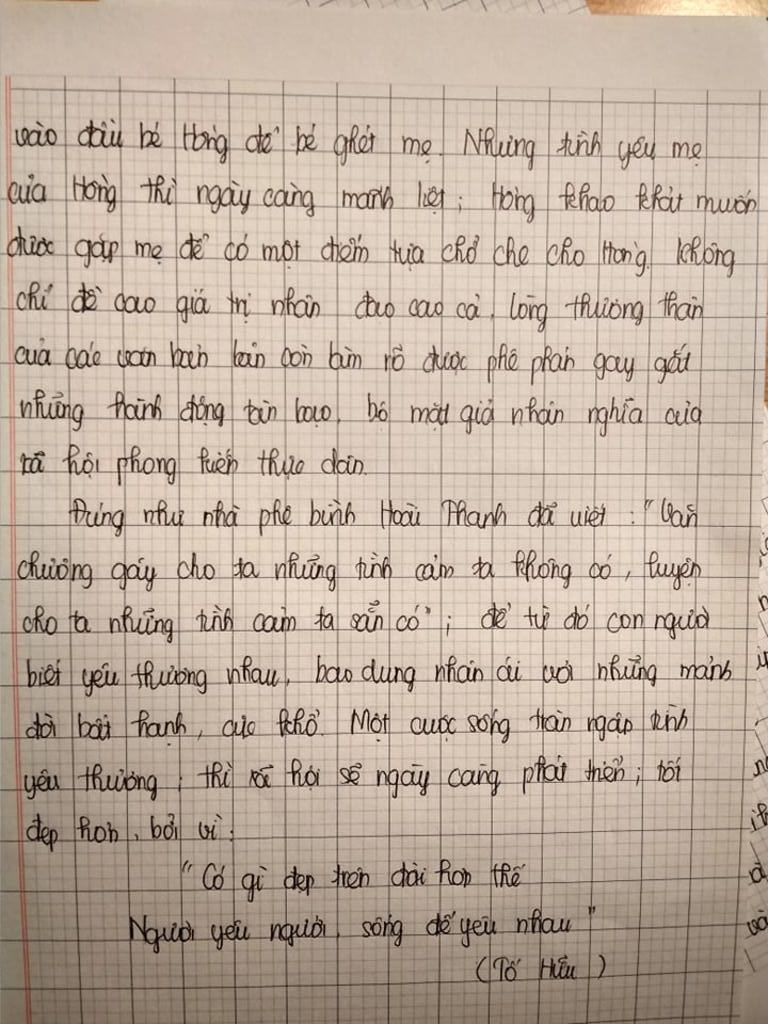 vào đầu bé Hồng để bé ghét mẹ. Nhưng tình yêu mẹ
của Hồng thì ngày càng mãnh liệt; Hồng khao khát muốn
được gặp mẹ để có một điểm tựa chở che cho Hồng. Không
chỉ đề cao giá trị nhân đạo cao cả, lòng thương thân
của các văn bản còn làm rõ được phê phán gay gắt
những hành động tàn bạo, bộ mặt giả nhân nghĩa của
xã hội phong kiến thực dân.
Đúng như nhà phê bình Hoài Thanh đã viết: "Văn
chương gây cho ta những tình cảm ta không có, luyện
cho ta những tình cảm ta sẵn có"; để từ đó con người
biết yêu thương nhau, bao dung nhân ái với những mảnh
đời bất hạnh, cực khổ. Một cuộc sống tràn ngập tình
yêu thương; thì xã hội sẽ ngày càng phát triển; tốt
đẹp hơn, bởi vì:
"Có gì đẹp trên đời hơn thế
Người yêu người, sống để yêu nhau"
(Tố Hữu)